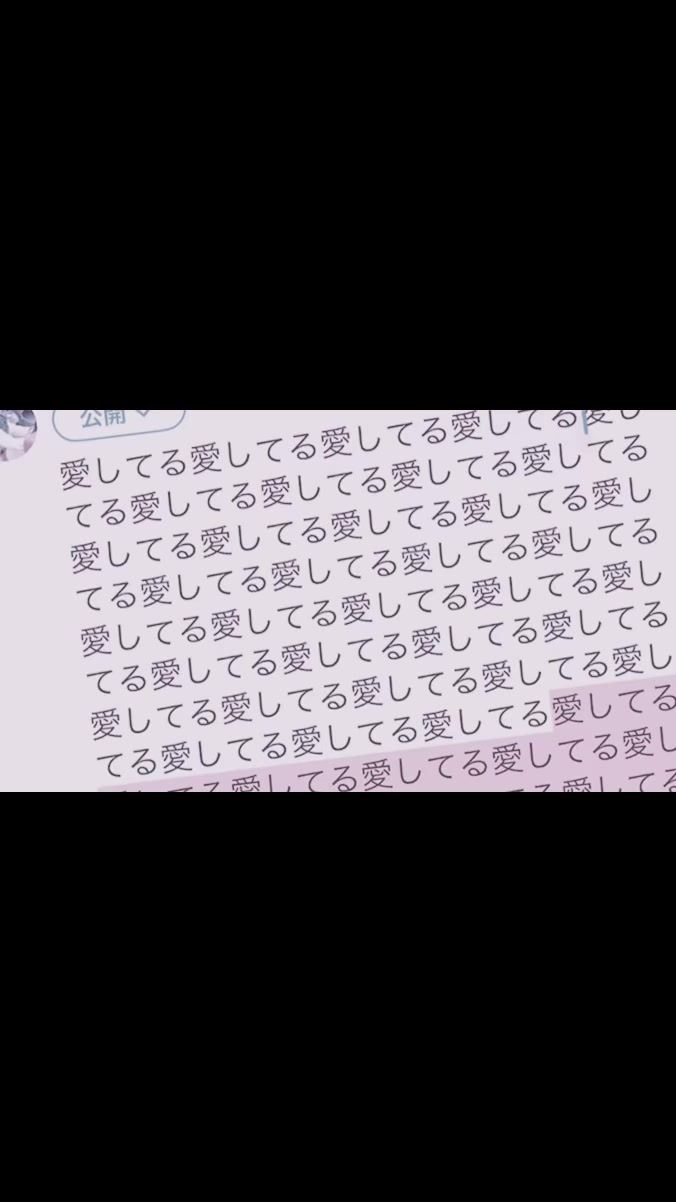 公開
愛してる愛してる愛してる愛してる愛し
てる愛してる愛してる愛してる愛してる
愛してる愛してる愛してる愛してる愛し
てる愛してる愛してる愛してる愛してる
愛してる愛してる愛してる愛してる愛し
てる愛してる愛してる愛してる愛してる
愛してる愛してる愛してる愛してる愛し
てる愛してる愛してる愛してる愛してる
愛してる愛してる愛してる愛してる愛し
る愛してる